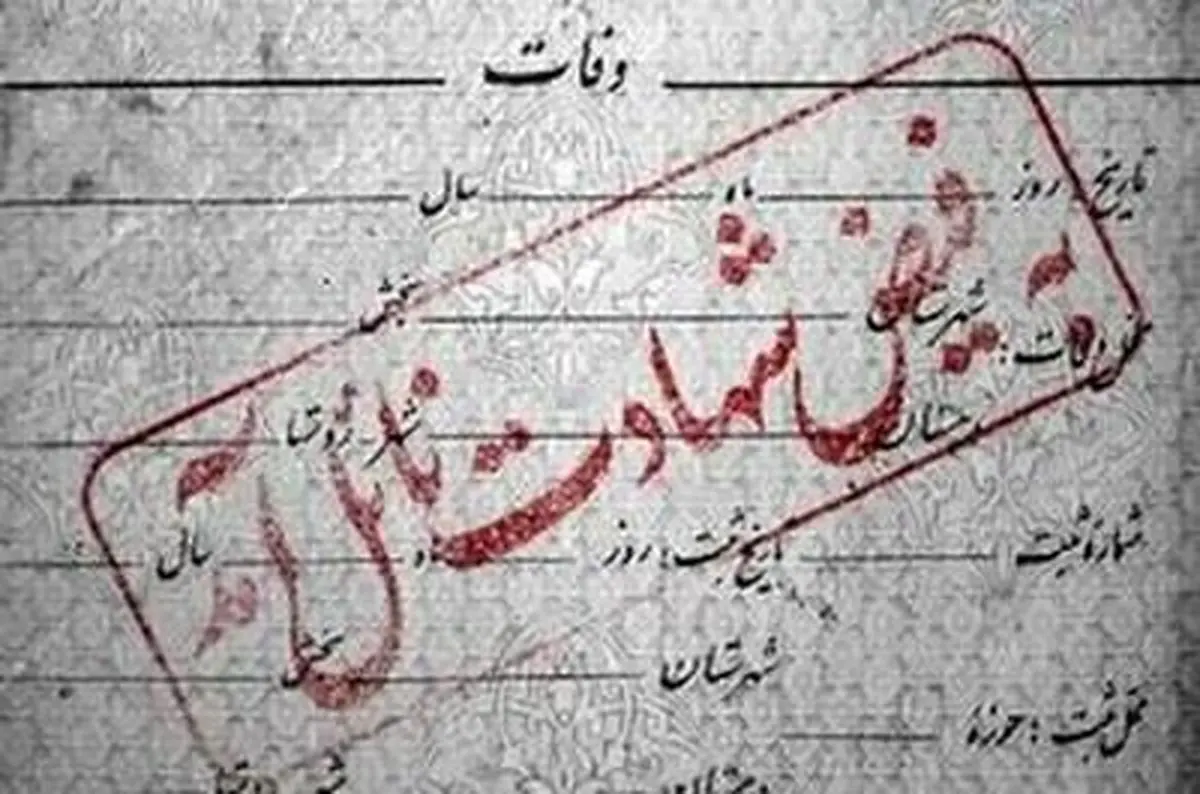 وفات
تاریخ روز ماه سال
محل وفات: شهرستان بخش
دهستان شهر - روستا
شماره ثبت تاریخ ثبت: روز ماه سال
محل ثبت: حوزه شهرستان بخش
دهستان شهر روستا
به فیض شهادت نائل آمد